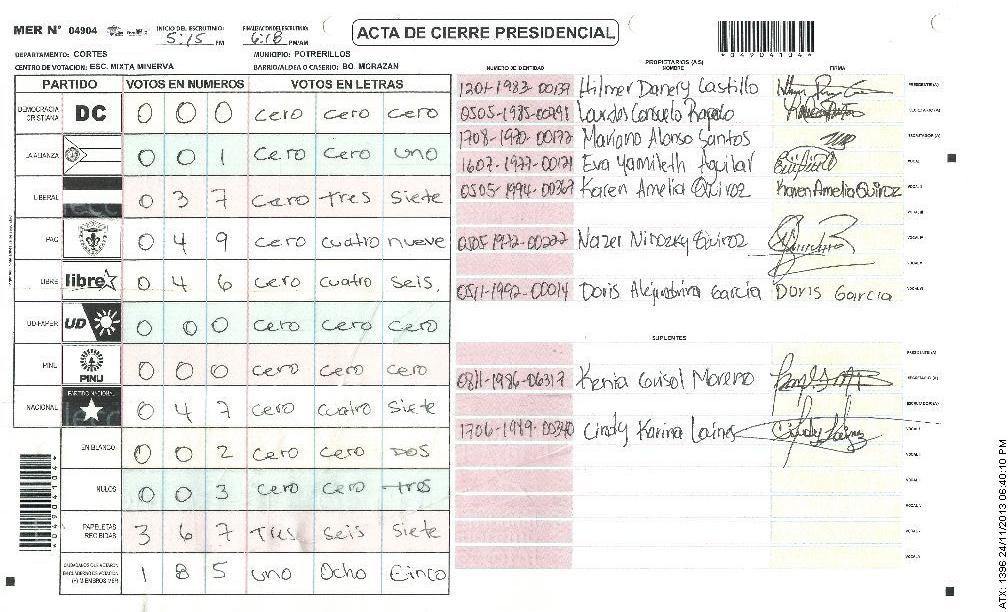 MER N° 04904 INICIO DEL ESCRUTINIO: 5:15 PM FINALIZACION DEL ESCRUTINIO: 6:18 PM/AM
ACTA DE CIERRE PRESIDENCIAL
DEPARTAMENTO: CORTES MUNICIPIO: POTRERILLOS
CENTRO DE VOTACION: ESC. MIXTA MINERVA BARRIO/ALDEA O CASERIO: BO. MORAZAN
PARTIDO VOTOS EN NUMEROS VOTOS EN LETRAS
DEMOCRACIA CRISTIANA DC 0 0 0 cero cero cero
LA ALIANZA 0 0 1 cero cero uno
LIBERAL 0 3 7 cero tres siete
PAC 0 4 9 cero cuatro nueve
LIBRE libre 0 4 6 cero cuatro seis.
UD-FAPER UD 0 0 0 cero cero cero
PINU PINU 0 0 0 cero cero cero
NACIONAL PARTIDO NACIONAL 0 4 7 cero cuatro siete
EN BLANCO 0 0 2 cero cero dos
NULOS 0 0 3 cero cero tres
PAPELETAS RECIBIDAS 3 6 7 Tres seis siete
CIUDADANOS QUE VOTARON EN CUADERNO DE VOTACION (+) MIEMBROS MER 1 8 5 uno Ocho Cinco
PROPIETARIOS (AS)
NUMERO DE IDENTIDAD NOMBRE FIRMA
Hilmer Danery Castillo PRESIDENTE (A)
0505-1985-00291 SECRETARIO (A)
Mariano Alonso Santos ESCRUTADOR (A)
Eva Yamileth Aguilar VOCAL
0505-1994-00369 Karen Amelia Quiroz Karen Amelia Quiroz
Quiroz
0511-1992-00014 Doris García Doris Garcia
SUPLENTES
PRESIDENTE (A)
Kenia Moreno SECRETARIO (A)
ESCRUTADOR (A)
Cindy Karina
ATX: 1396 24/11/2013 06:40:10 PM